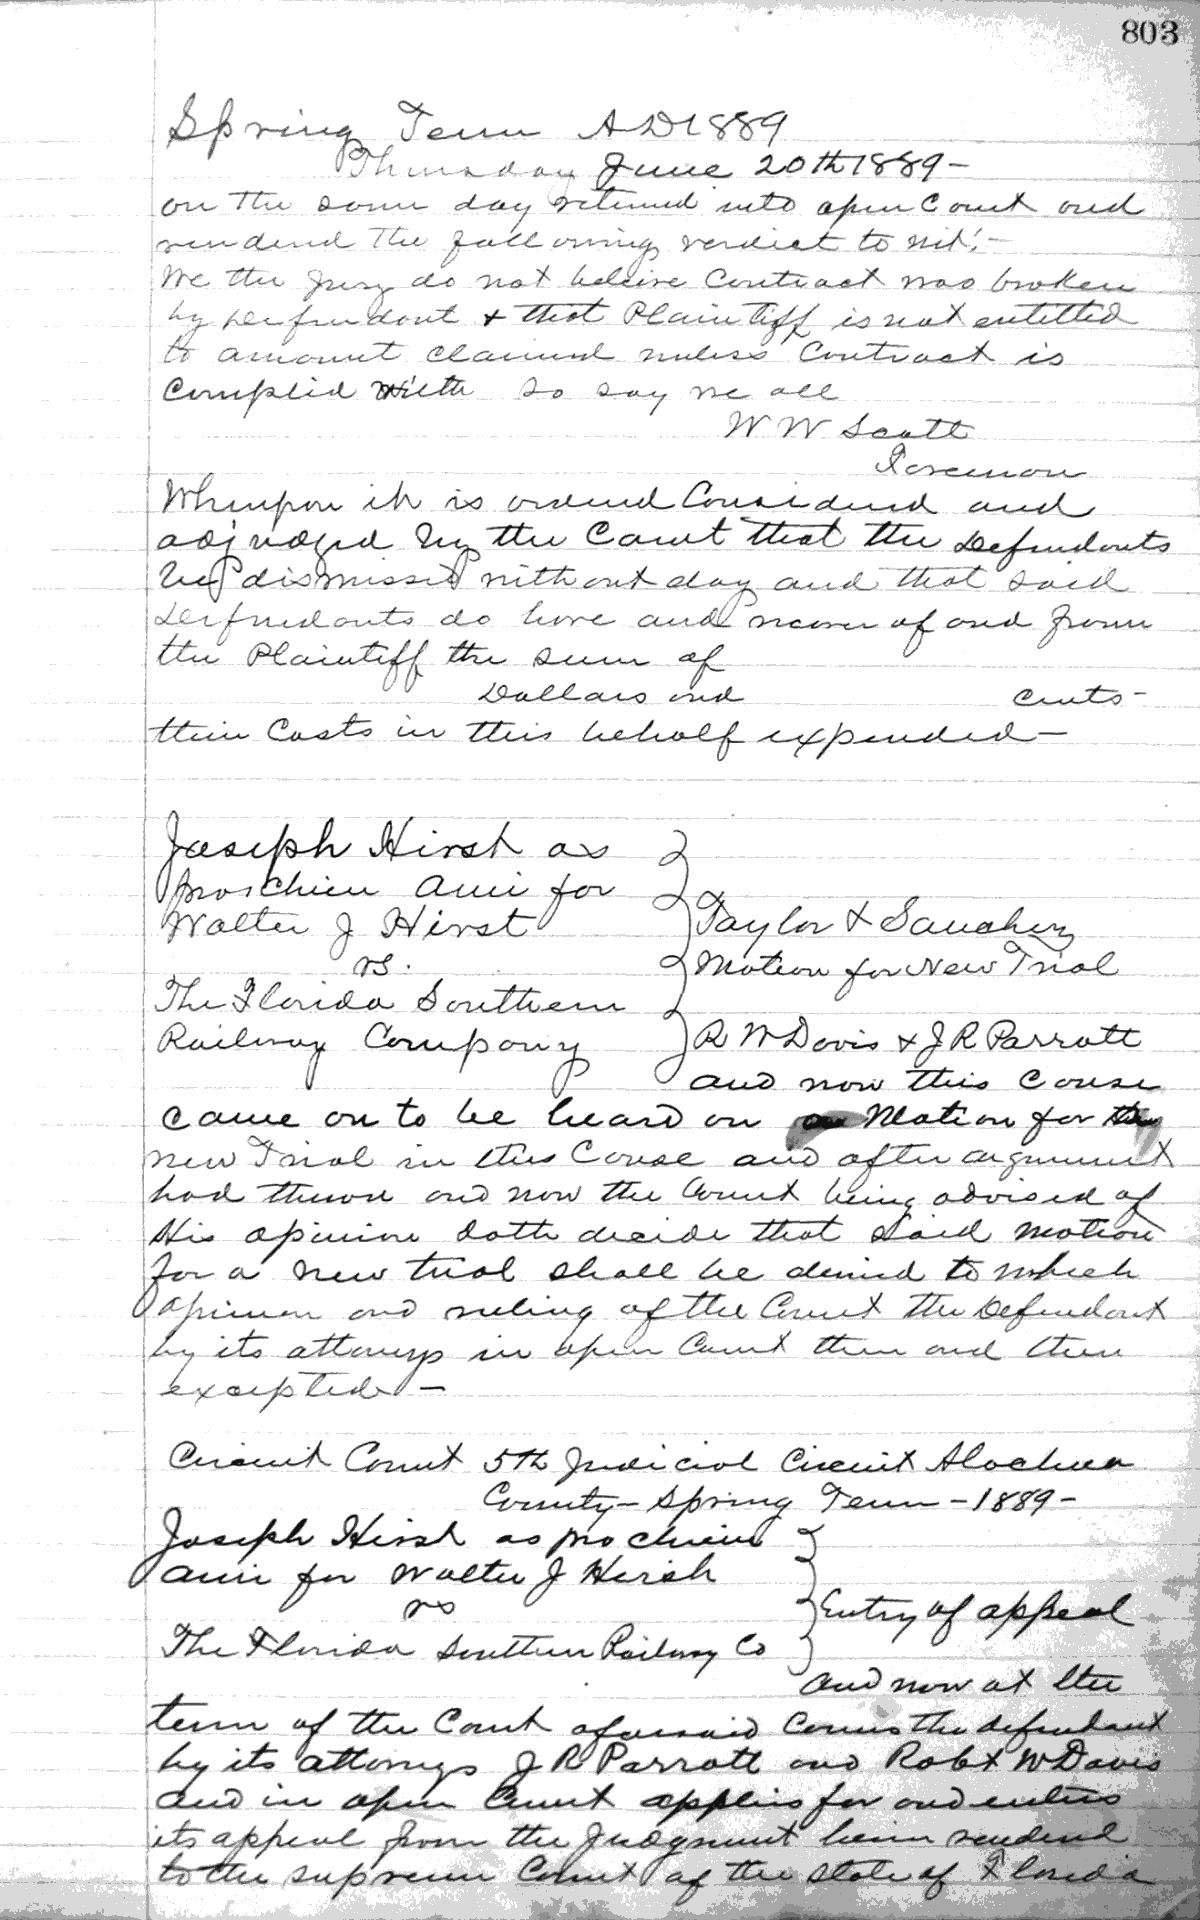 803
Spring Term AD 1889
Thursday June 20th 1889-
on the same day returned into open Court and
rendered the following verdict to wit:-
We the jury do not beleive Contract was broken
by Defendant & that Plaintiff is not entitled
to amount claimed unless Contract is
Complied with so say we all
W W Scott
Foreman
Whereupon it is ordered Considered and
adjudged by the Court that the Defendants
be dismissed without day and that said
Defendants do have and recover of and from
the Plaintiff the sum of
Dollars and cents-
their Costs in this behalf expended-
Joseph Hirst as
proschien Ami for
Walter J Hirst
vs.
The Florida Southern
Railway Company
Taylor & Sanchez
Motion for New Trial
R W Davis & J R Parrott
and now this Cause
came on to be heard on Motion for
new Trial in this Cause and after argument
had thereon and now the Court being advised of
His opinion doth decide that said motion
for a new trial shall be denied to which
opinion and ruling of the Court the Defendant
by its attorneys in open Court then and there
excepted-
Circuit Court 5th Judicial Circuit Alachua
County- Spring Term -1889-
Joseph Hirst as prochein
ami for Walter J Hirst
vs
The Florida Southern Railway Co
Entry of appeal
and now at the
term of the Court aforesaid Comes the defendant
by its attorneys J R Parrott and Robt W Davis
and in open Court applies for and enters
its appeal from the Judgment herein rendered
to the supreme Court of the state of Florida